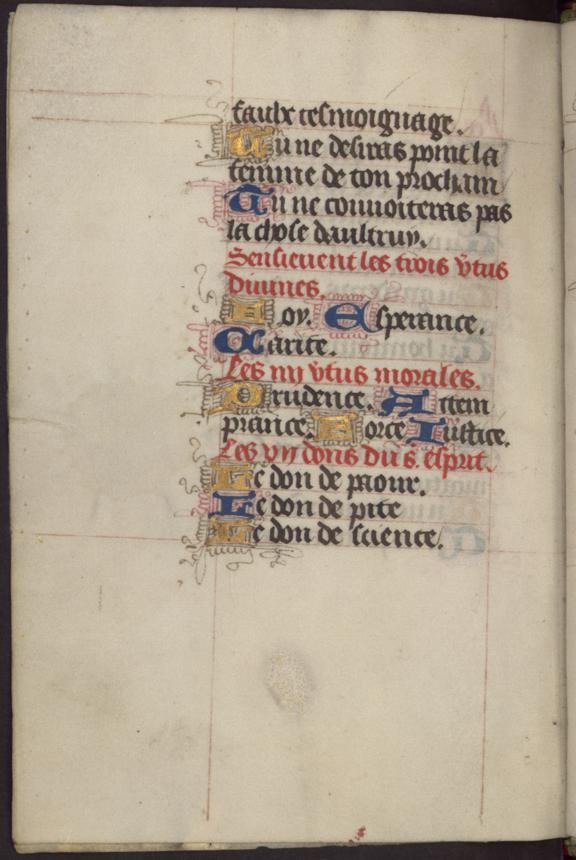 faulx tesmoignage.
Tu ne desiras point la
femme de ton prochain
Tu ne couuoiteras pas
la chose daultruy.
Sensieuent les trois v̾tus
diuines.
Foy. Esperance.
Carite.
Les iiij v̾tus morales.
Prudence. Attem
prance. Force Iustice.
Les vij dons du s. esprit.
Le don de paour.
Le don de pite
Le don de science.